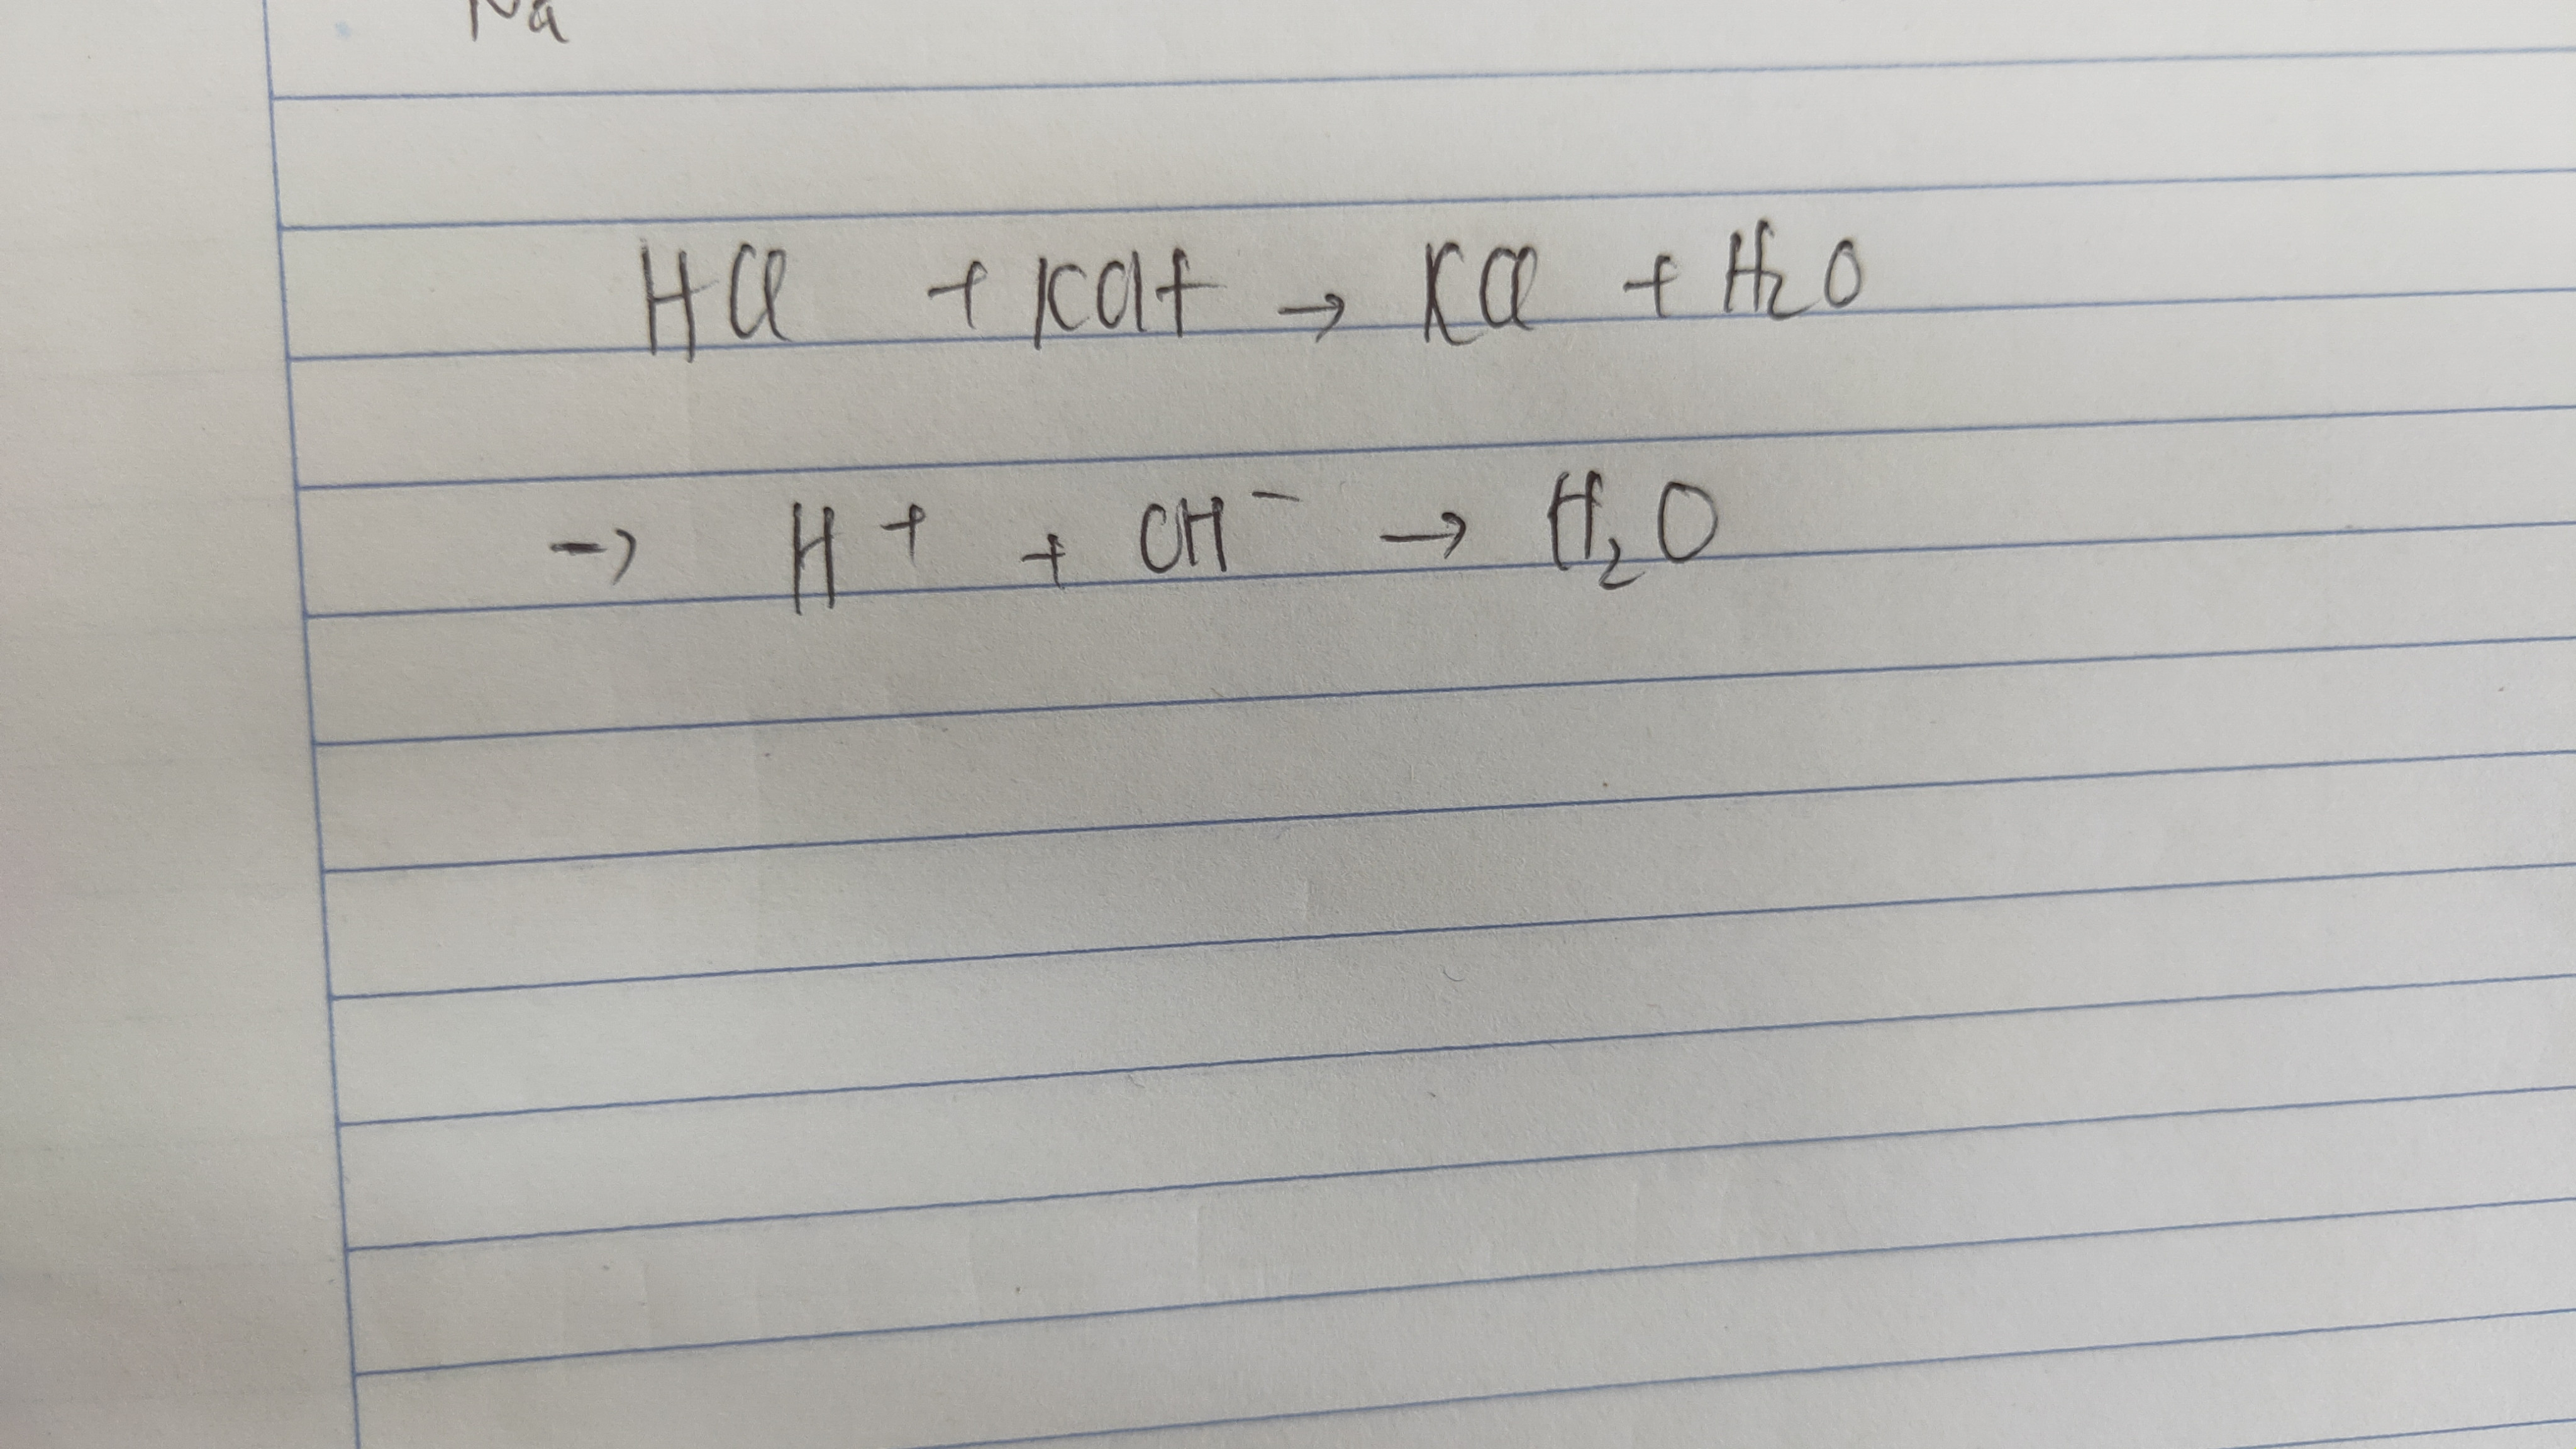 Na
HCl + KOH → KCl + H₂O
→ H⁺ + OH⁻ → H₂O